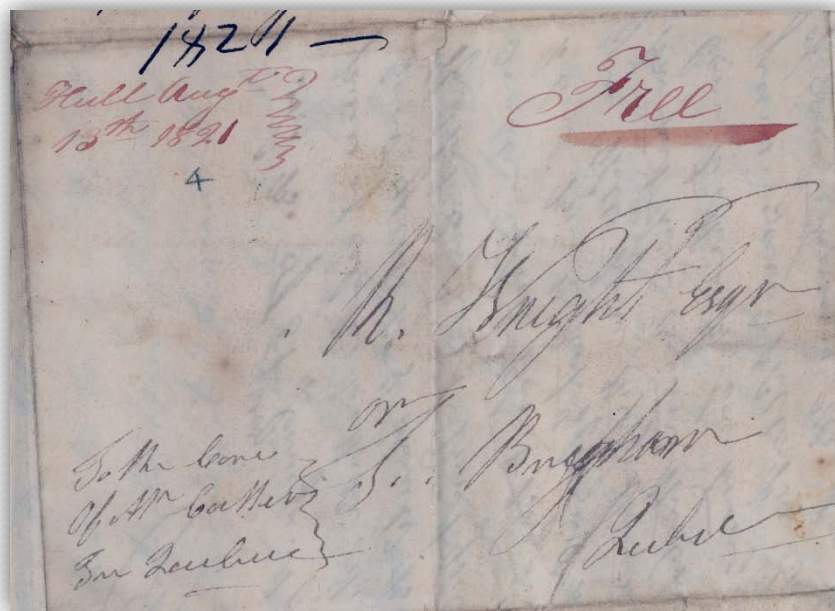 1821 —
Hull Augt
13th 1821
Free
4
R. Wright Esqr
or
T. Brigham
Quebec
To the Care
Of Mr
In Quebec